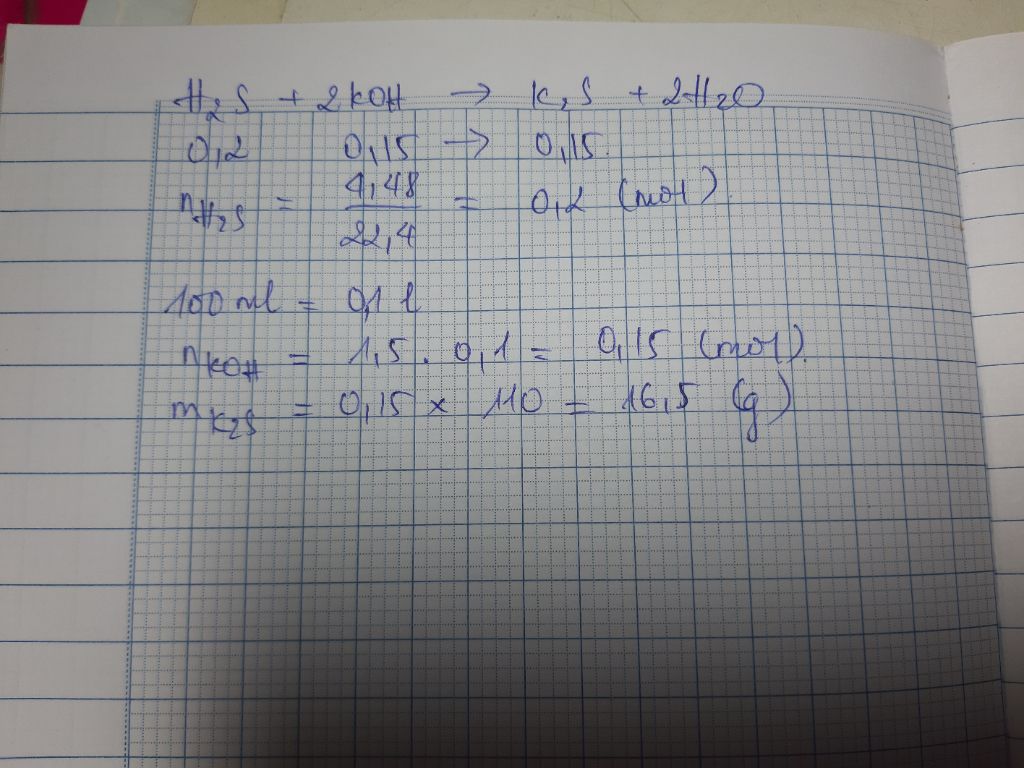 H₂S + 2KOH → K₂S + 2H₂O
0,2 0,15 → 0,15.
nH₂S = 4,48 / 22,4 = 0,2 (mol).
100 ml = 0,1 l
nKOH = 1,5 . 0,1 = 0,15 (mol).
mK₂S = 0,15 x 110 = 16,5 (g)